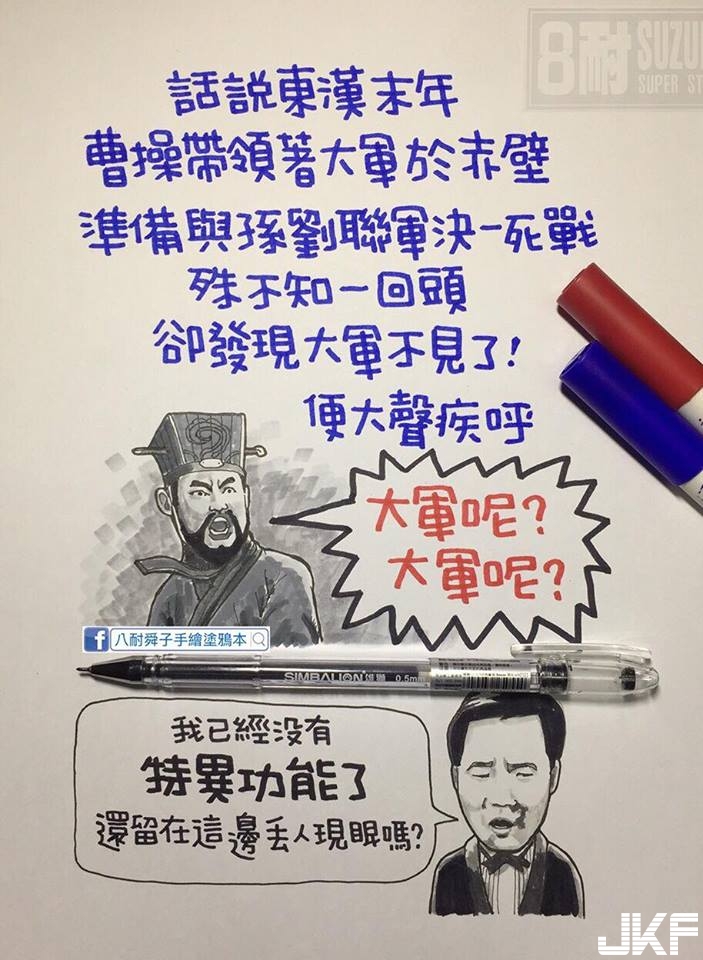 8耐 SUZU
SUPER ST
話說東漢末年
曹操帶領著大軍於赤壁
準備與孫劉聯軍決一死戰
殊不知一回頭
卻發現大軍不見了!
便大聲疾呼
大軍呢?
大軍呢?
f 八耐舜子手繪塗鴉本
SIMBALION 雄獅 0.5mm
我已經没有
特異功能了
還留在這邊丟人現眼嗎?
JKF